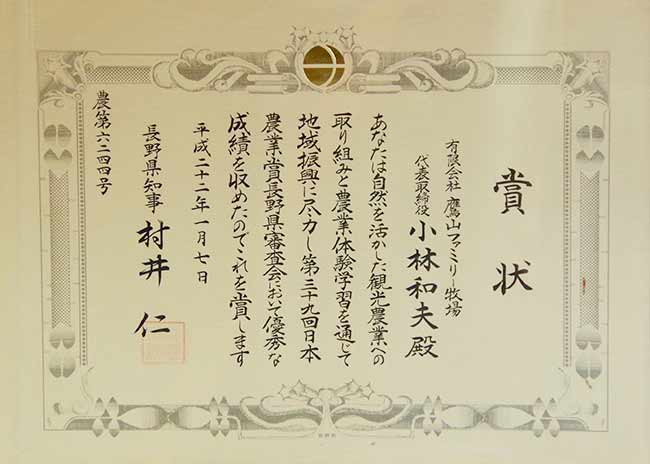 賞状
有限会社 鷹山ファミリー牧場
代表取締役 小林和夫殿
あなたは自然を活かした観光農業への
取り組みと農業体験学習を通じて
地域振興に尽力し第三十九回日本
農業賞長野県審査会において優秀な
成績を収めたのでこれを賞します
平成二十二年一月七日
長野県知事 村井 仁
農第六二四四号